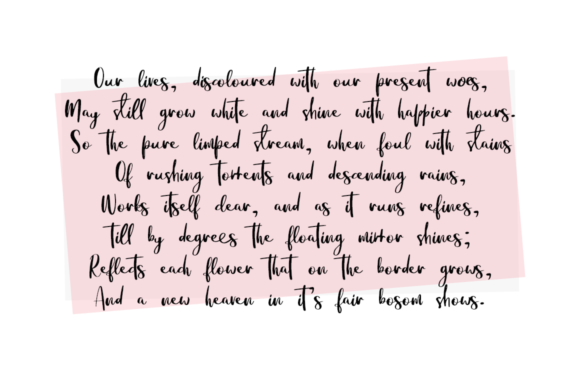 Our lives, discoloured with our present woes,
May still grow white and shine with happier hours.
So the pure limped stream, when foul with stains
Of rushing torrents and descending rains,
Works itself clear, and as it runs refines,
till by degrees the floating mirror shines;
Reflects each flower that on the border grows,
And a new heaven in it's fair bosom shows.